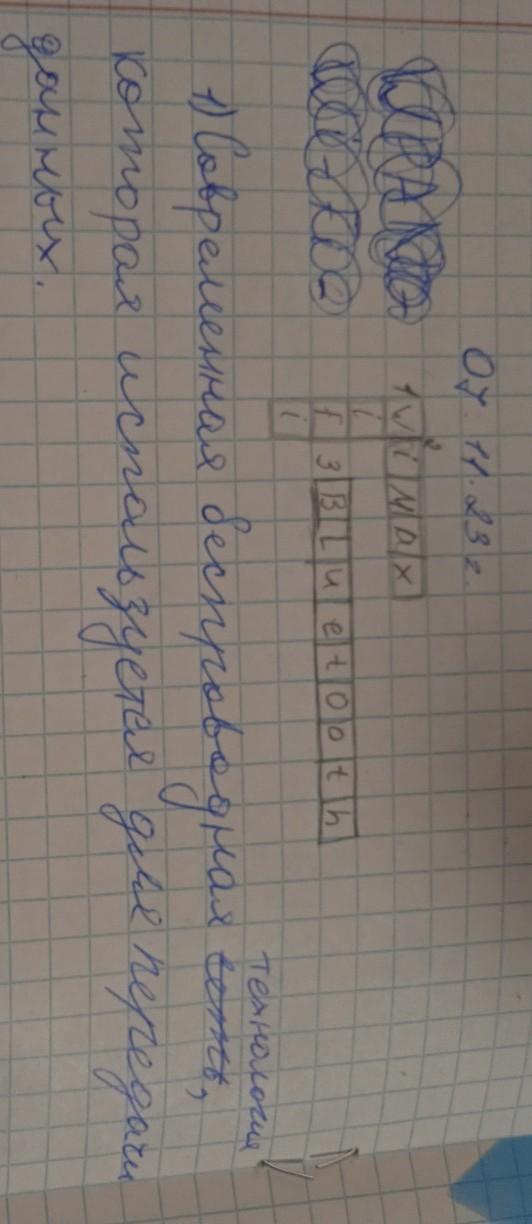 07.11.23г.
1 W 2 i M a x
i
f 3 B L u e t O o t h
i
технология
1) Современная беспроводная сеть,
которая используется для передачи
данных.